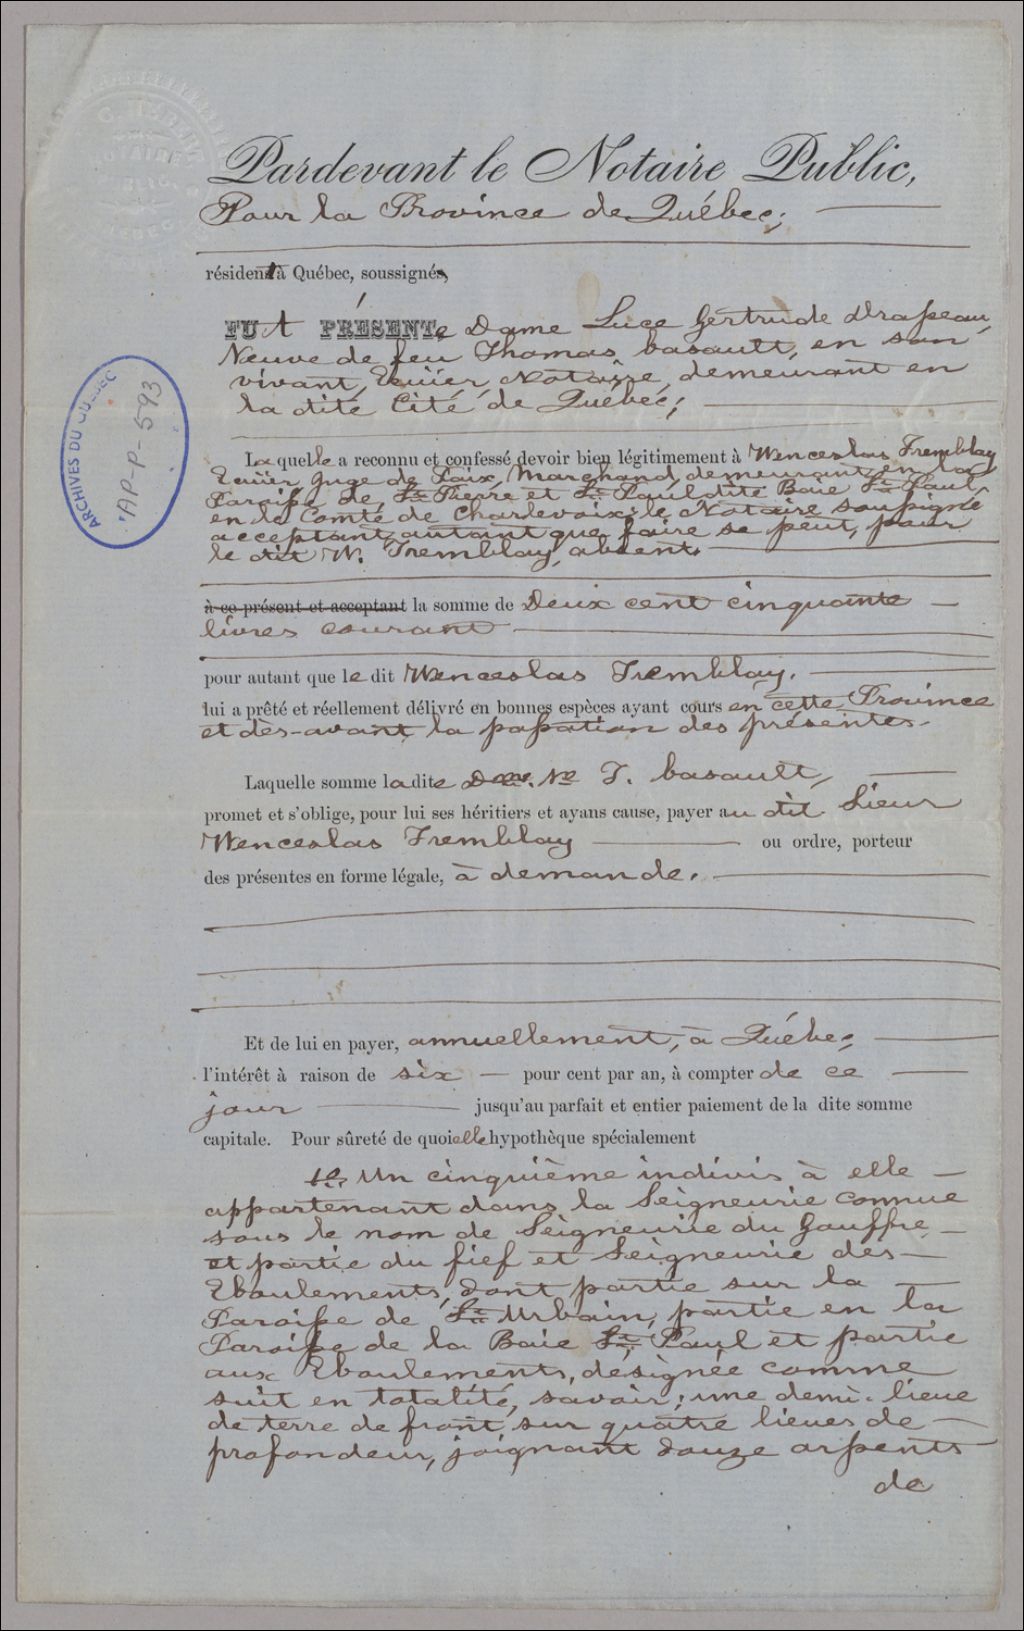 NOTAIRE
Pardevant le Notaire Public,
Pour la Province de Québec;
résident à Québec, soussigné,
FUt PRÉSENTe Dame Luce Gertrude Drapeau,
Veuve de feu Thomas Casault, en son
vivant, Ecuier, Notaire, demeurant en
la dite Cité de Québec;
ARCHIVES DU QUÉBEC
AP-P-593
Laquelle a reconnu et confessé devoir bien légitimement à Wenceslas Tremblay
Ecuier Juge de Paix, Marchand, demeurant en la
Paroisse de St. Pierre et St. Paul dite Baie St. Paul,
en le Comté de Charlevoix; le Notaire soussigné
acceptant autant que faire se peut, pour
le dit W. Tremblay, absent.
à ce présent et acceptant la somme de Deux cent cinquante
livres courant
pour autant que le dit Wenceslas Tremblay.
lui a prêté et réellement délivré en bonnes espèces ayant cours en cette Province
et dès-avant la passation des présentes.
Laquelle somme la dite Dme. Ve T. Casault,
promet et s'oblige, pour lui ses héritiers et ayans cause, payer au dit Sieur
Wenceslas Tremblay ou ordre, porteur
des présentes en forme légale, à demande.
Et de lui en payer, annuellement, à Québec
l'intérêt à raison de six pour cent par an, à compter de ce
jour jusqu'au parfait et entier paiement de la dite somme
capitale. Pour sûreté de quoi elle hypothèque spécialement
1o. Un cinquième indivis à elle
appartenant dans la Seigneurie connue
sous le nom de Seigneurie du Gouffre
et partie du fief et Seigneurie des
Eboulements, dont partie sur la
Paroisse de St. Urbain, partie en la
Paroisse de la Baie St. Paul et partie
aux Eboulements, désignée comme
suit en totalité, savoir; une demi-lieue
de terre de front sur quatre lieues de
profondeur, joignant douze arpents
de